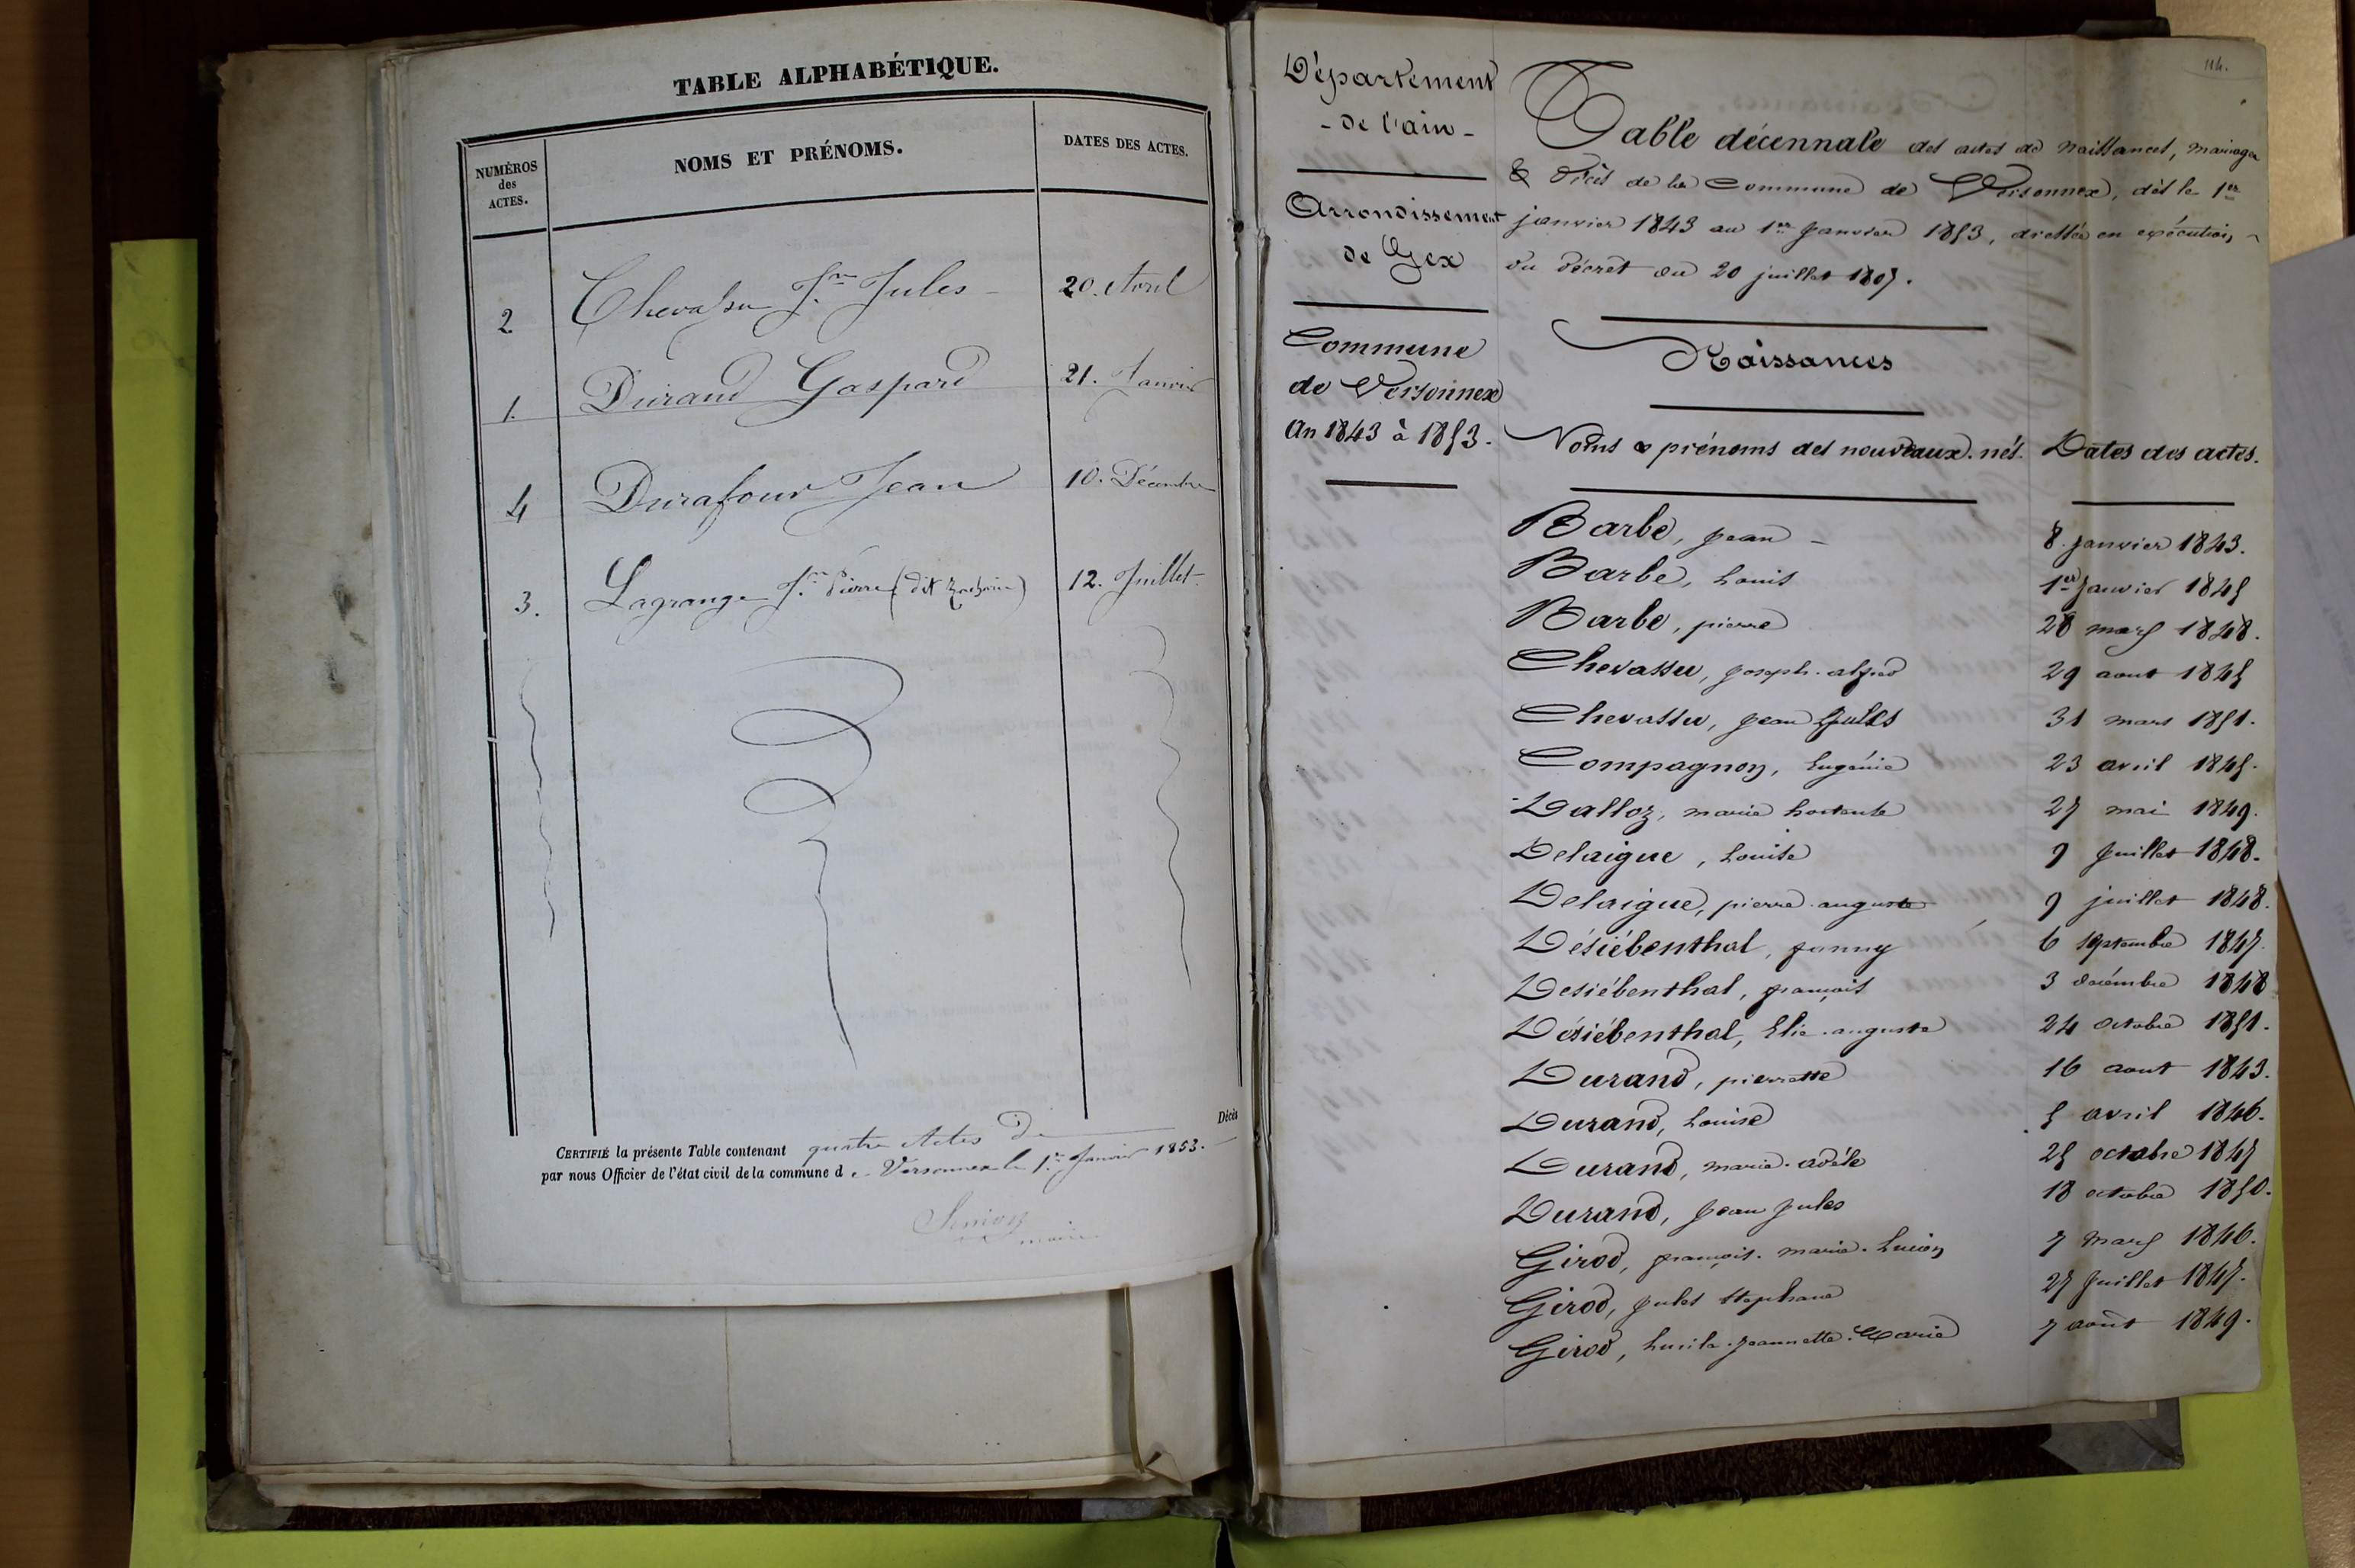 TABLE ALPHABÉTIQUE.
NUMÉROS des ACTES.
NOMS ET PRÉNOMS.
DATES DES ACTES.
2 Chevassu Jn Jules 20. Avril
1. Durand Gaspard 21. Janvier
4 Durafour Jean 10. Décembre
3. Lagrange Jn Pierre (dit 12. Juillet
Décès
CERTIFIÉ la présente Table contenant quatre Actes De
par nous Officier de l'état civil de la commune d e Versonnex le 1er Janvier 1853.
maire
114.
Département
- de l'ain -
Arrondissement
de Gex
Commune
de Versonnex
An 1843 à 1853.
Table décennale des actes de naissances, mariages
& Décès de la Commune de Versonnex, dès le 1er
janvier 1843 au 1er Janvier 1853, dressée en exécution
du décret du 20 juillet 1807.
Naissances
Noms & prénoms des nouveaux-nés. Dates des actes.
Barbe, jean - 8 janvier 1843.
Barbe, Louis 1er Janvier 1845
Barbe, pierre 28 mars 1848.
Chevassu, joseph-alfred 29 aout 1845
Chevassu, jean Jules 31 mars 1851.
Compagnon, Eugénie 23 avril 1845.
Dalloz, marie hortense 27 mai 1849.
Delaigue, Louise 9 Juillet 1848.
Delaigue, pierre auguste 9 juillet 1848.
Désiébenthal, fanny 6 septembre 1847.
Desiébenthal, françois 3 décembre 1848
Désiébenthal, Elie-auguste 24 octobre 1851.
Durand, pierrette 16 aout 1843.
Durand, Louise 5 avril 1846.
Durand, marie-adèle 25 octobre 1847
Durand, jean jules 18 octobre 1850.
Girod, françois-marie-Lucien 7 mars 1846.
Girod, jules Stephane 27 Juillet 1847.
Girod, Lucile-jeannette-Marie 7 août 1849.